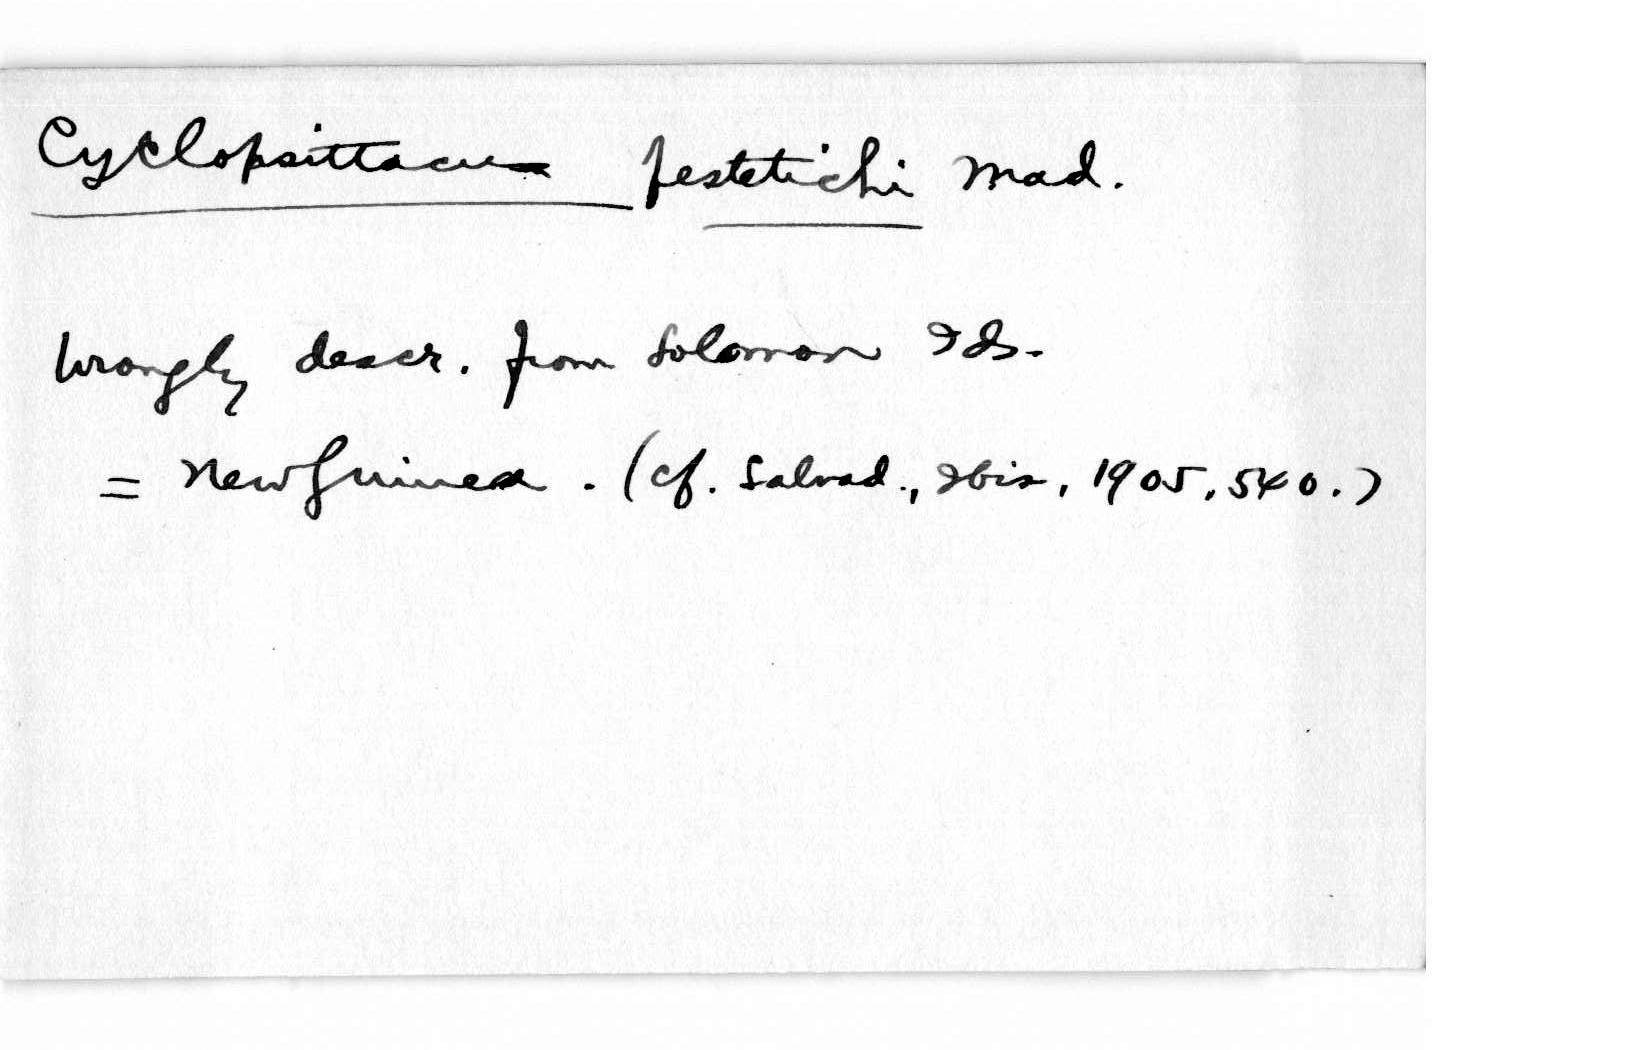 Cyclopsittacus festetichi Mad.
wrongly descr. from Solomon Ids.
= New Guinea. (cf. Salvad., Ibis, 1905, 540.)